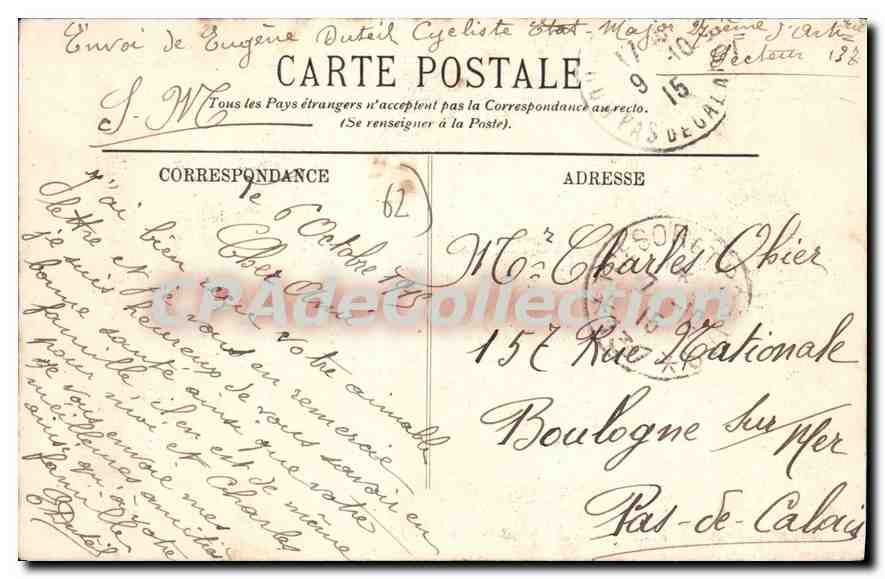 Envoi de Eugène Duteil Cycliste Etat-Major d'Artrie
Secteur 137
CARTE POSTALE
S. M.
Tous les Pays étrangers n'acceptent pas la Correspondance au recto.
(Se renseigner à la Poste).
17
9 10
15
PAS DE CALAIS
CORRESPONDANCE
ADRESSE
62
le 6 Octobre 1915
Cher Ami
J'ai bien reçu votre aimable
lettre et je vous en remercie
je suis heureux de vous savoir en
bonne santé ainsi que votre
famille il en est de même
pour moi et Charles
Je vous envoie mes
meilleures amitiés
ainsi qu'à votre
famille
EDuteil
Mr Charles Ohier
157 Rue Nationale
Boulogne sur Mer
Pas-de-Calais
CPAdeCollection